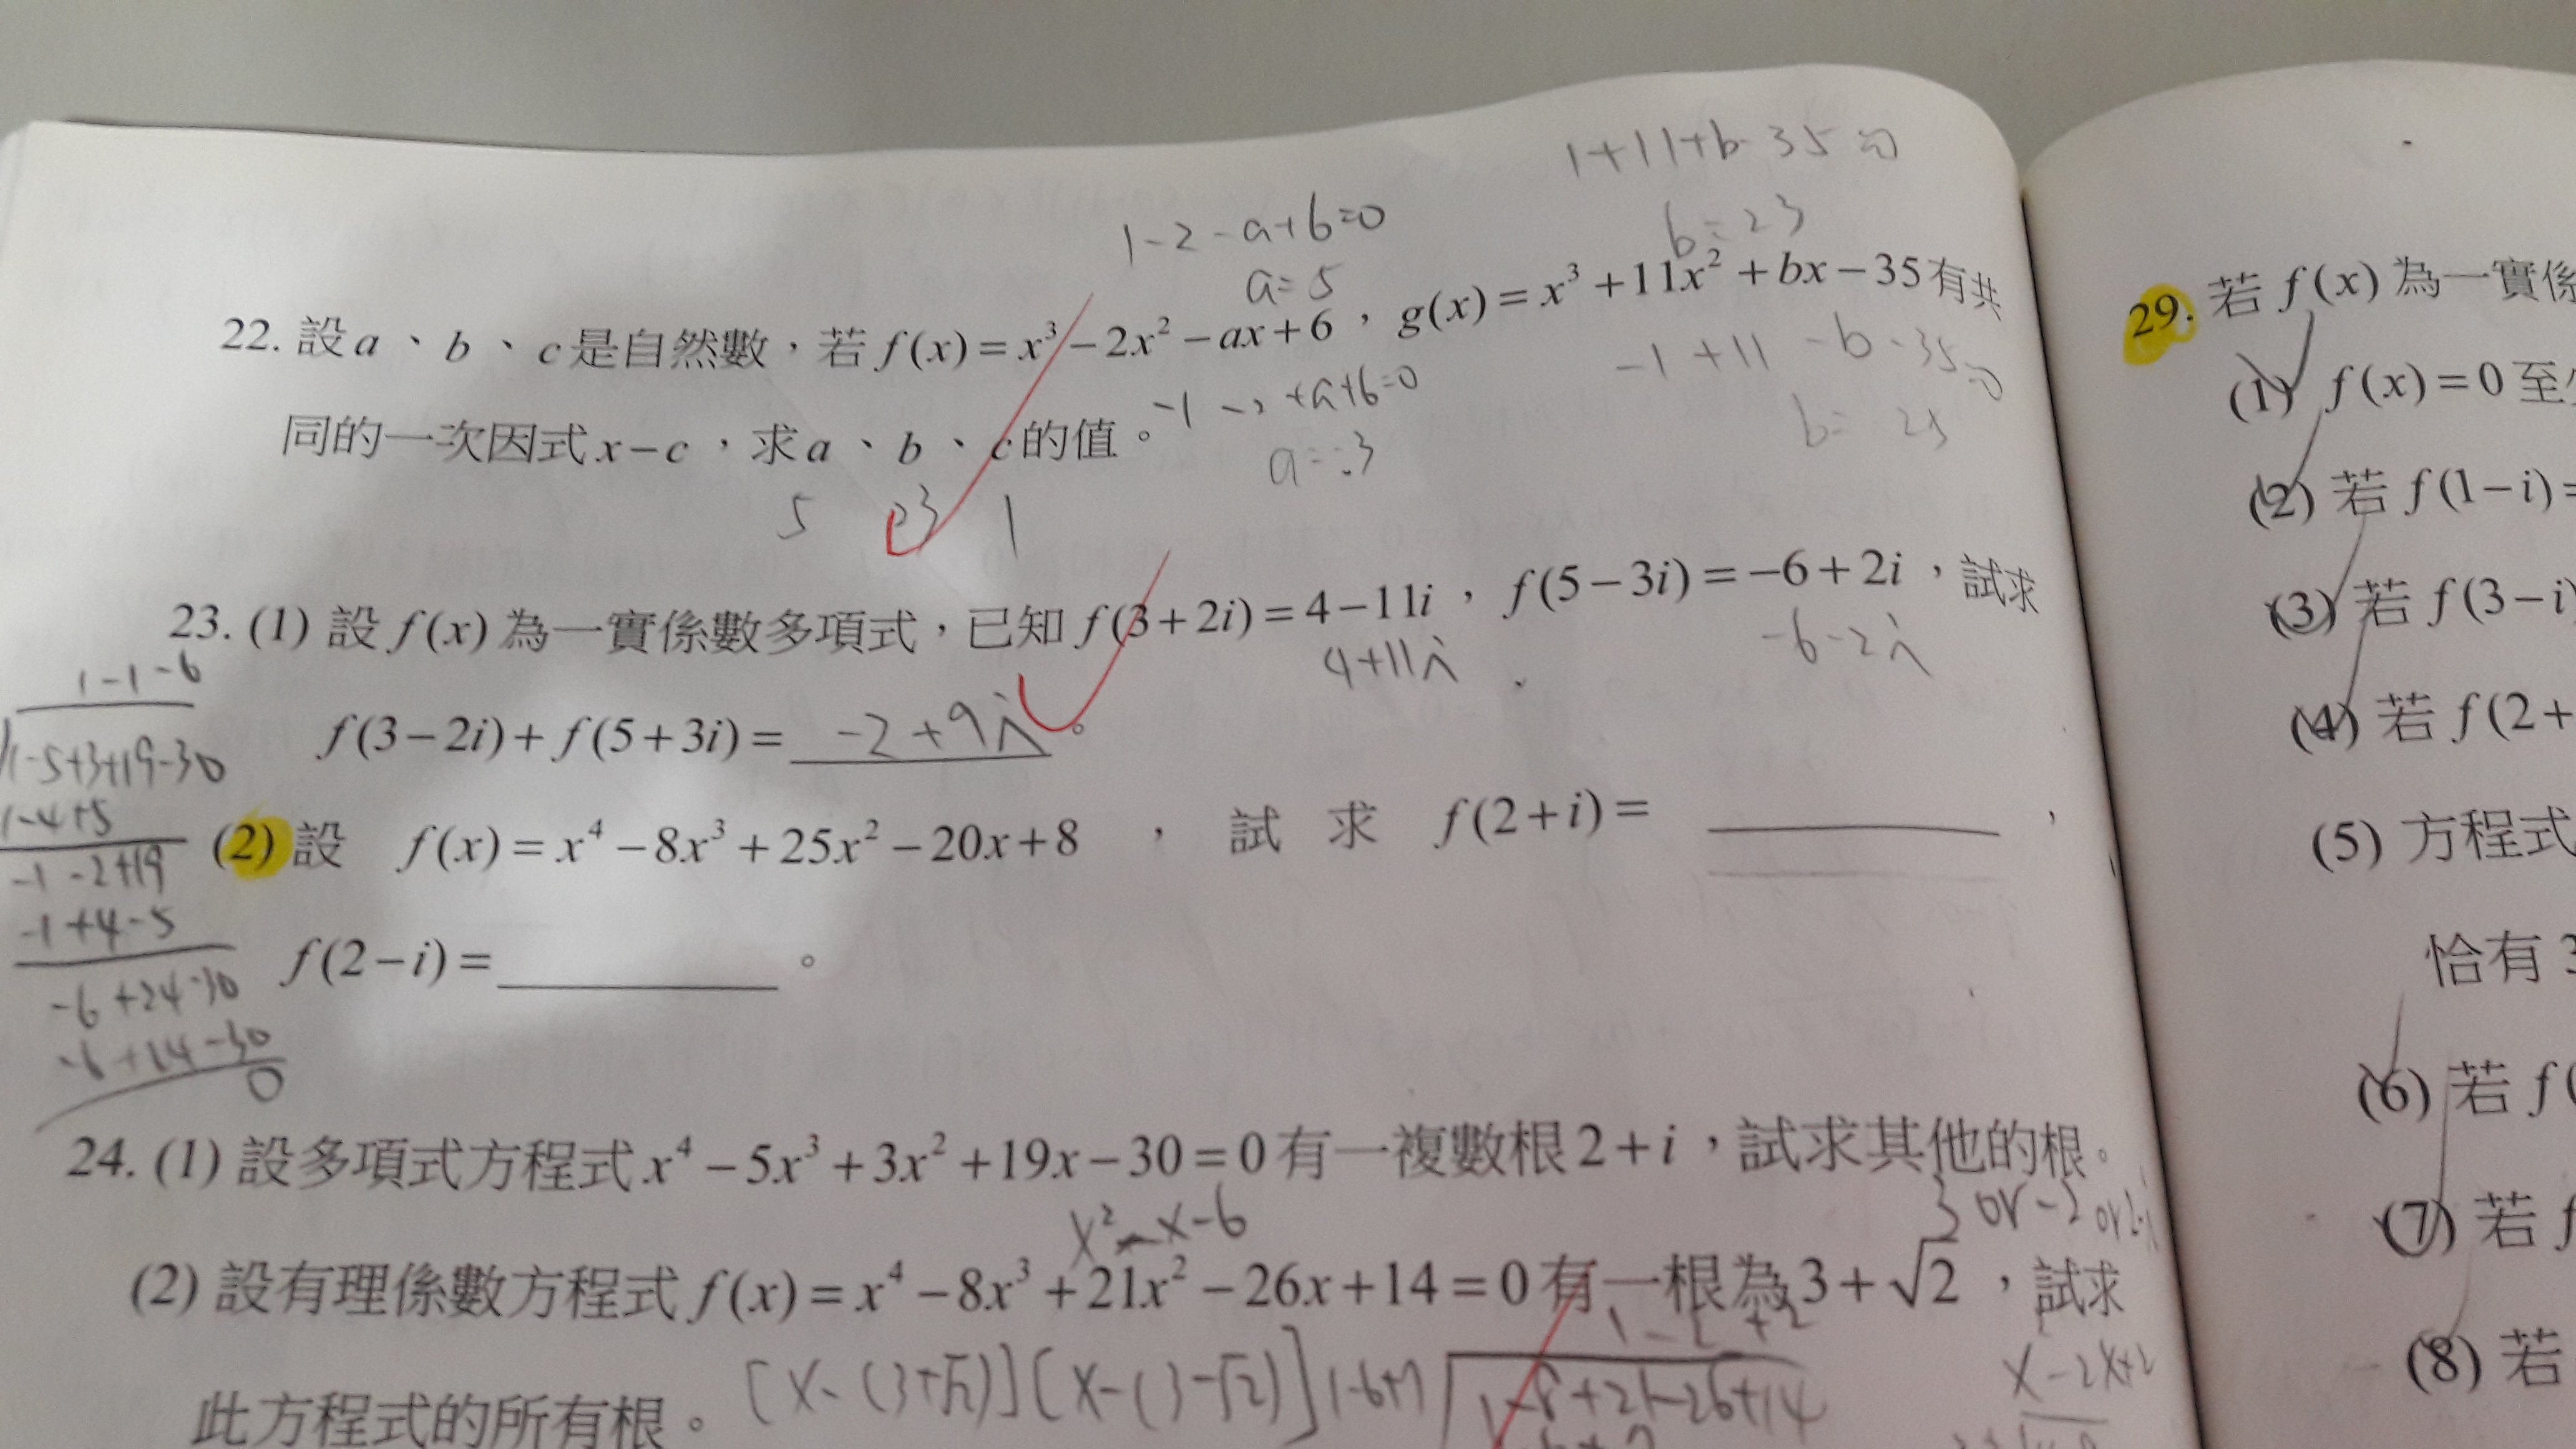 1+11+b-35=0
b=23
1-2-a+6=0
a=5
22. 設 a、b、c 是自然數，若 f(x)=x³-2x²-ax+6，g(x)=x³+11x²+bx-35 有共
-1+11-b-35=0
同的一次因式 x-c，求 a、b、c 的值。
a=-3
5 23 1
23. (1) 設 f(x) 為一實係數多項式，已知 f(3+2i)=4-11i，f(5-3i)=-6+2i，試求
4+11i -6-2i
1-1-6
f(3-2i)+f(5+3i)= -2+9i 。
1-5+3+19-30
1-4+5
(2) 設 f(x)=x⁴-8x³+25x²-20x+8，試求 f(2+i)= ，
-1-2+19
-1+4-5
f(2-i)= 。
-6+24-30
-6+24-30
0
24. (1) 設多項式方程式 x⁴-5x³+3x²+19x-30=0 有一複數根 2+i，試求其他的根。
x²-x-6 3 or -2 or 2-i
(2) 設有理係數方程式 f(x)=x⁴-8x³+21x²-26x+14=0 有一根為 3+√2，試求
1-2+2
x-2x+2
此方程式的所有根。 [x-(3+√2)][x-(3-√2)] 1-6+7 1-8+21-26+14
29. 若 f(x) 為一實係
(1) f(x)=0 至
(2) 若 f(1-i)=
(3) 若 f(3-i)
(4) 若 f(2+
(5) 方程式
恰有 3
(6) 若 f(
(7) 若 f
(8) 若